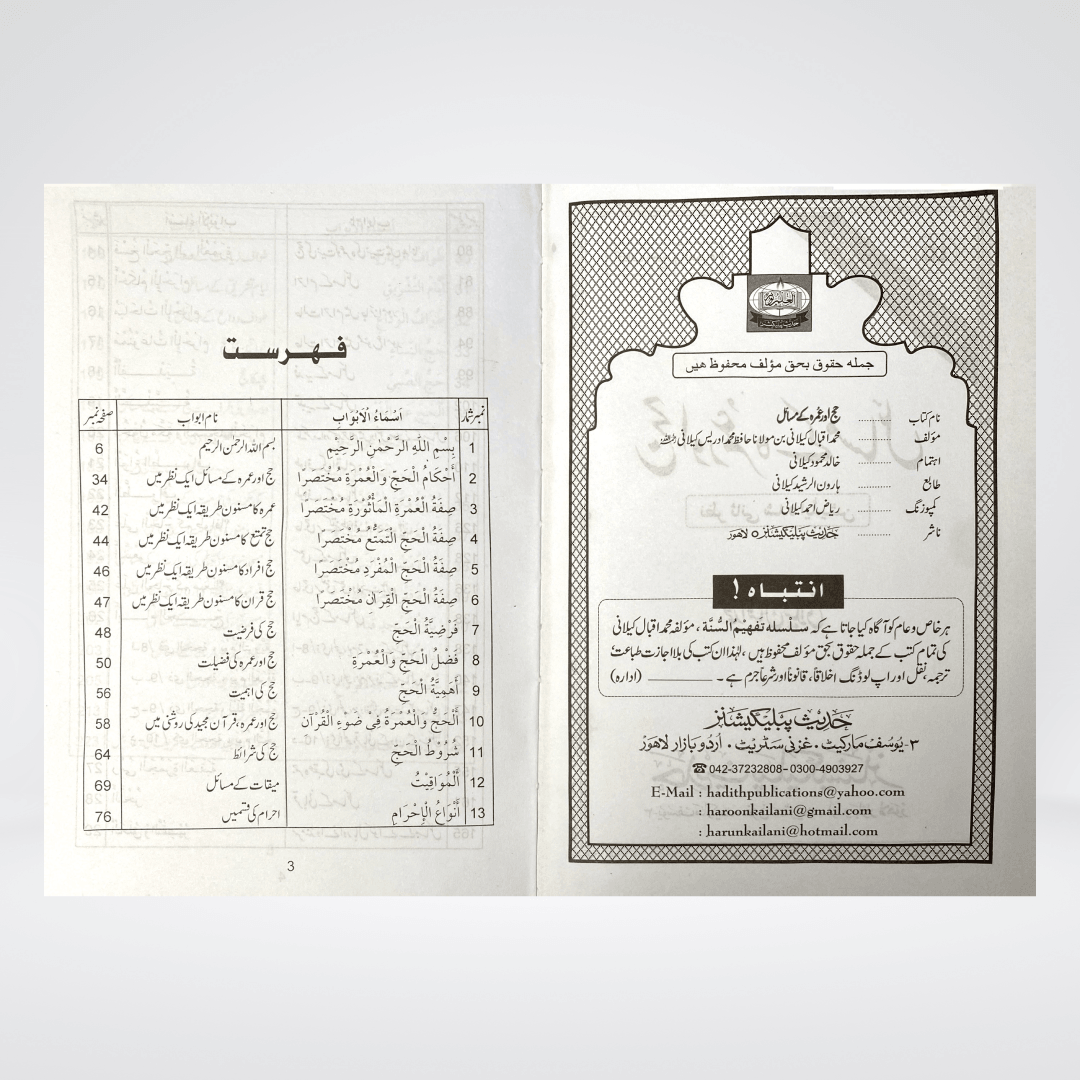 جملہ حقوق بحق مؤلف محفوظ ہیں
نام کتاب ........... حج اور عمرہ کے مسائل
مؤلف ........... محمد اقبال کیلانی بن مولانا حافظ محمد ادریس کیلانی رحمہ اللہ
اہتمام ........... خالد محمود کیلانی
طابع ........... ہارون الرشید کیلانی
کمپوزنگ ........... ریاض احمد کیلانی
ناشر ........... حدیث پبلیکیشنز لاہور
انتباہ !
ہر خاص و عام کو آگاہ کیا جاتا ہے کہ سلسلہ تفہیم السُّنَّة ، مؤلفہ محمد اقبال کیلانی
کی تمام کتب کے جملہ حقوق بحق مؤلف محفوظ ہیں ، لہٰذا ان کتب کی بلا اجازت طباعت
ترجمہ، نقل اور اپ لوڈنگ اخلاقاً، قانوناً اور شرعاً جرم ہے ۔ ــــــــــــ (ادارہ)
حدیث پبلیکیشنز
۳- یوسف مارکیٹ ۰ غزنی سٹریٹ ۰ اُردو بازار لاہور
☎ 042-37232808- 0300-4903927
E-Mail : hadithpublications@yahoo.com
: haroonkailani@gmail.com
: harunkailani@hotmail.com
فہرست
نمبر شمار اَسْمَاءُ الْاَبْوَابِ نام ابواب صفحہ نمبر
1 بِسْمِ اللهِ الرَّحْمٰنِ الرَّحِيْمِ بسم اللہ الرحمٰن الرحیم 6
2 أَحْكَامُ الْحَجِّ وَالْعُمْرَةِ مُخْتَصَرًا حج اور عمرہ کے مسائل ایک نظر میں 34
3 صِفَةُ الْعُمْرَةِ الْمَأْثُوْرَةِ مُخْتَصَرًا عمرہ کا مسنون طریقہ ایک نظر میں 42
4 صِفَةُ الْحَجِّ الْتَمَتُّعُ مُخْتَصَرًا حج تمتع کا مسنون طریقہ ایک نظر میں 44
5 صِفَةُ الْحَجِّ الْمُفْرَدِ مُخْتَصَرًا حج افراد کا مسنون طریقہ ایک نظر میں 46
6 صِفَةُ الْحَجِّ الْقِرَانِ مُخْتَصَرًا حج قران کا مسنون طریقہ ایک نظر میں 47
7 فَرْضِيَّةُ الْحَجِّ حج کی فرضیت 48
8 فَضْلُ الْحَجِّ وَالْعُمْرَةِ حج اور عمرہ کی فضیلت 50
9 أَهَمِيَّةُ الْحَجِّ حج کی اہمیت 56
10 اَلْحَجُّ وَالْعُمْرَةُ فِىْ ضَوْءِ الْقُرْآنِ حج اور عمرہ، قرآن مجید کی روشنی میں 58
11 شُرُوْطُ الْحَجِّ حج کی شرائط 64
12 أَلْمَوَاقِيْتُ میقات کے مسائل 69
13 أَنْوَاعُ الْإِحْرَامِ احرام کی قسمیں 76
3